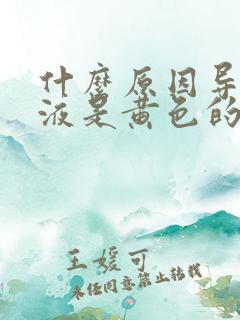 什麼原因导
液是黄色的
王媛可
未经同意禁止转载